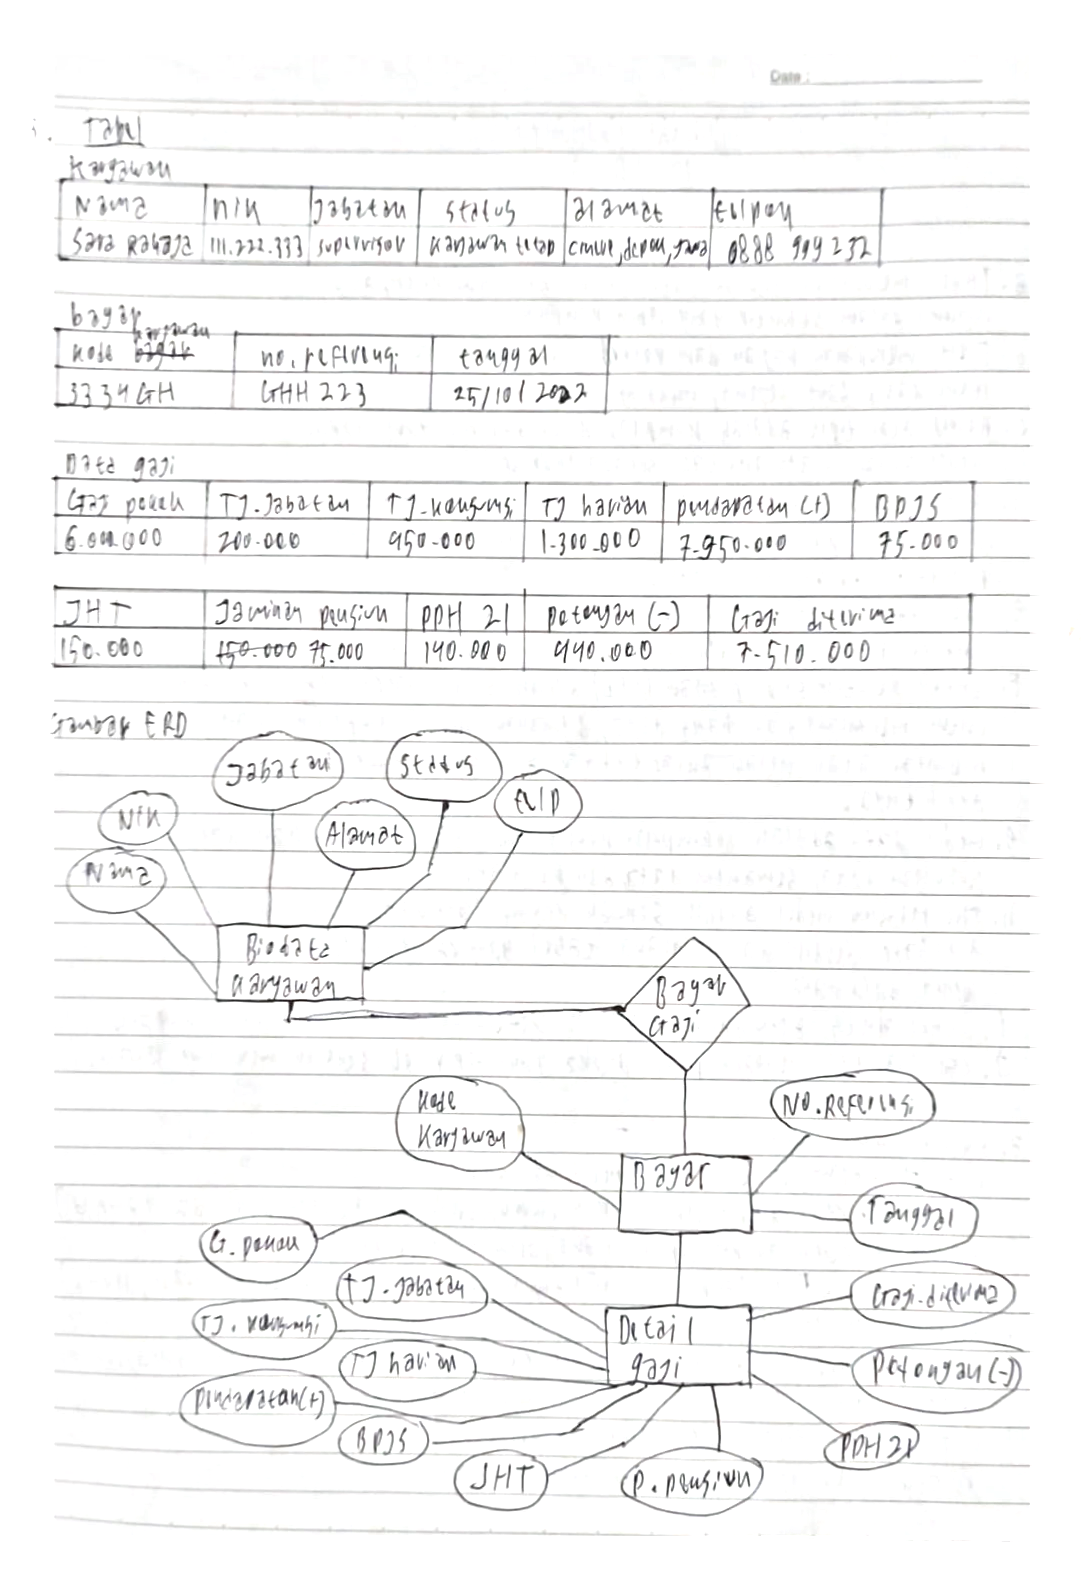 Date :
Tabel
Karyawan
Nama NIK Jabatan Status alamat telpon
Sara Rahaja 111.222.333 supervisor karyawan tetap 0888 999 232
bayar
karyawan
kode bayar no. referensi tanggal
3334GH GHH 223 25/10/2022
Data gaji
Gaji pokok TJ.Jabatan TJ.konsumsi TJ harian pendapatan (+) BPJS
6.000.000 200.000 450.000 1.300.000 7.950.000 75.000
JHT Jaminan pensiun PPH 21 potongan (-) Gaji diterima
150.000 150.000 75.000 140.000 440.000 7.510.000
Gambar ERD
Jabatan
Status
NIK
Alamat
telp
Nama
Biodata
Karyawan
Bayar
Gaji
Kode
Karyawan
No.Referensi
Bayar
Tanggal
G.pokok
TJ.Jabatan
Gaji.diterima
TJ.konsumsi
Detail
gaji
TJ harian
Potongan (-)
pendapatan(+)
BPJS
PPH 21
JHT
P.pensiun